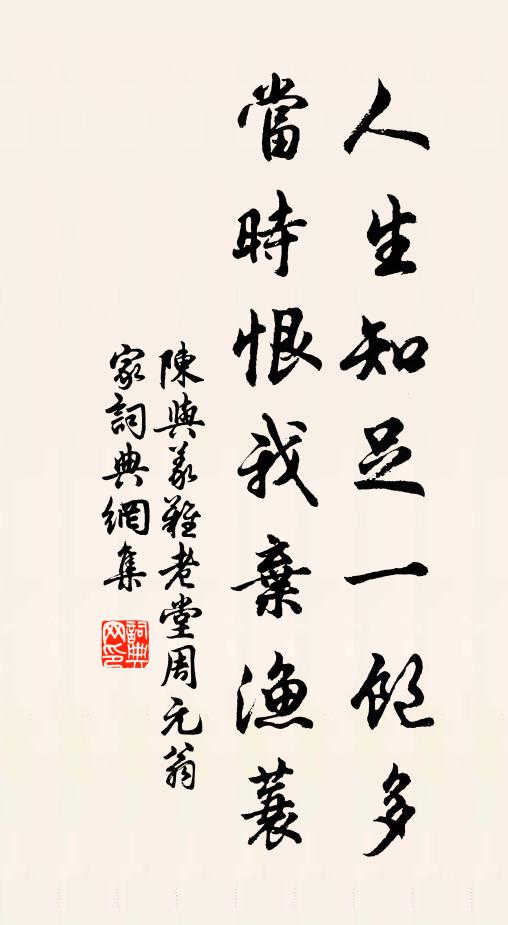 人生知足一飽多
當時恨我棄漁蓑
陳與義難老堂周元翁
家詞典網集
詞典网印